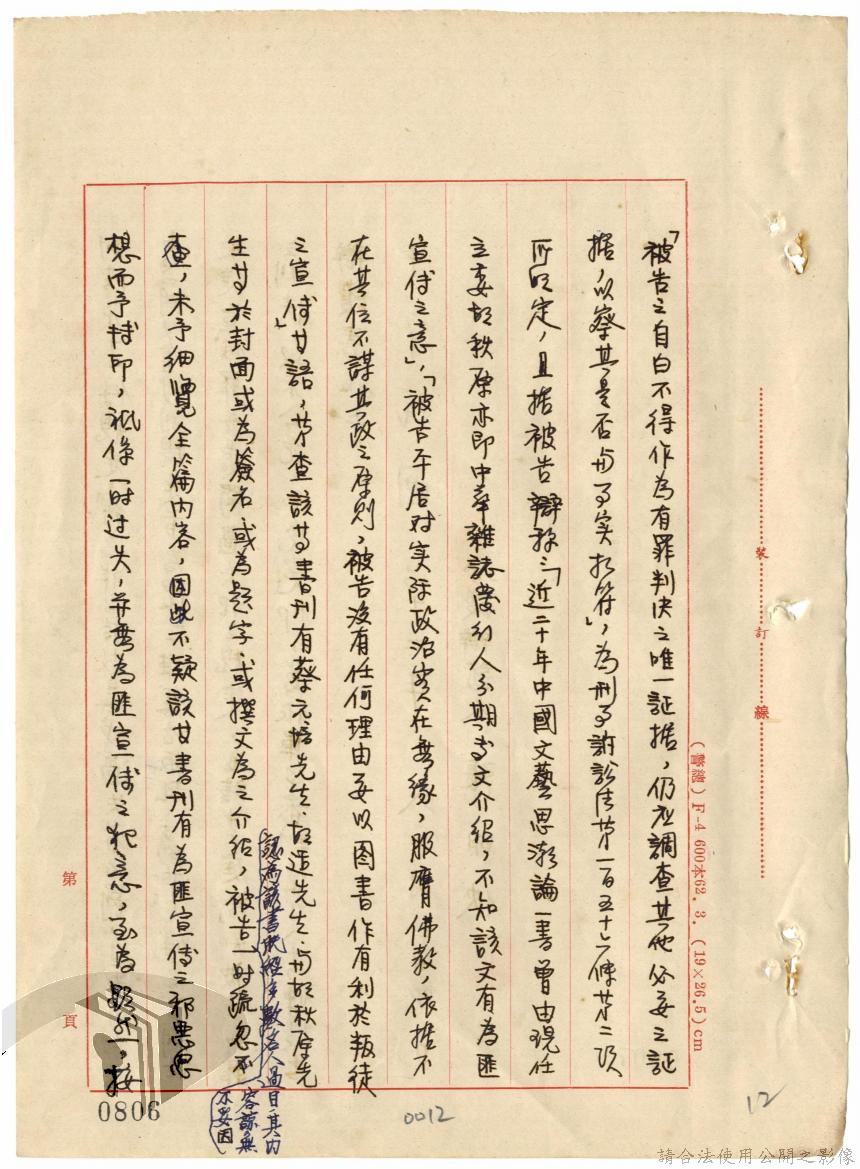 「被告之自白不得作為有罪判決之唯一証據，仍应調查其他必要之証
据，以察其是否与事实相符」，為刑事訴訟法第一百五十六條第二項
所明定，且据被告辯称：「近二十年中國文藝思潮論一書曾由現任
立委胡秋原亦即中華雜誌發行人分期专文介紹，不知該文有為匪
宣传之意」，「被告平居对实际政治实在無緣，服膺佛教，依据不
在其位不謀其政之原則，被告没有任何理由要以图書作有利於叛徒
之宣传」廿語，第查該廿書刊有蔡元培先生、胡适先生、与胡秋原先
生廿於封面或為簽名或為題字、或撰文為之介紹，被告一时疏忽不
認為該書既經多数名人過目其内
容諒無
不妥因
查，未予细覽全篇内容，因此不疑該廿書刊有為匪宣传之邪悪思
想而予持印，祇係一时过失，並無為匪宣传之犯意，至為顯然。按
裝訂線
(普通) F-4 600本62. 3. (19×26.5) cm
第 頁
0806
0012
12
請合法使用公開之影像